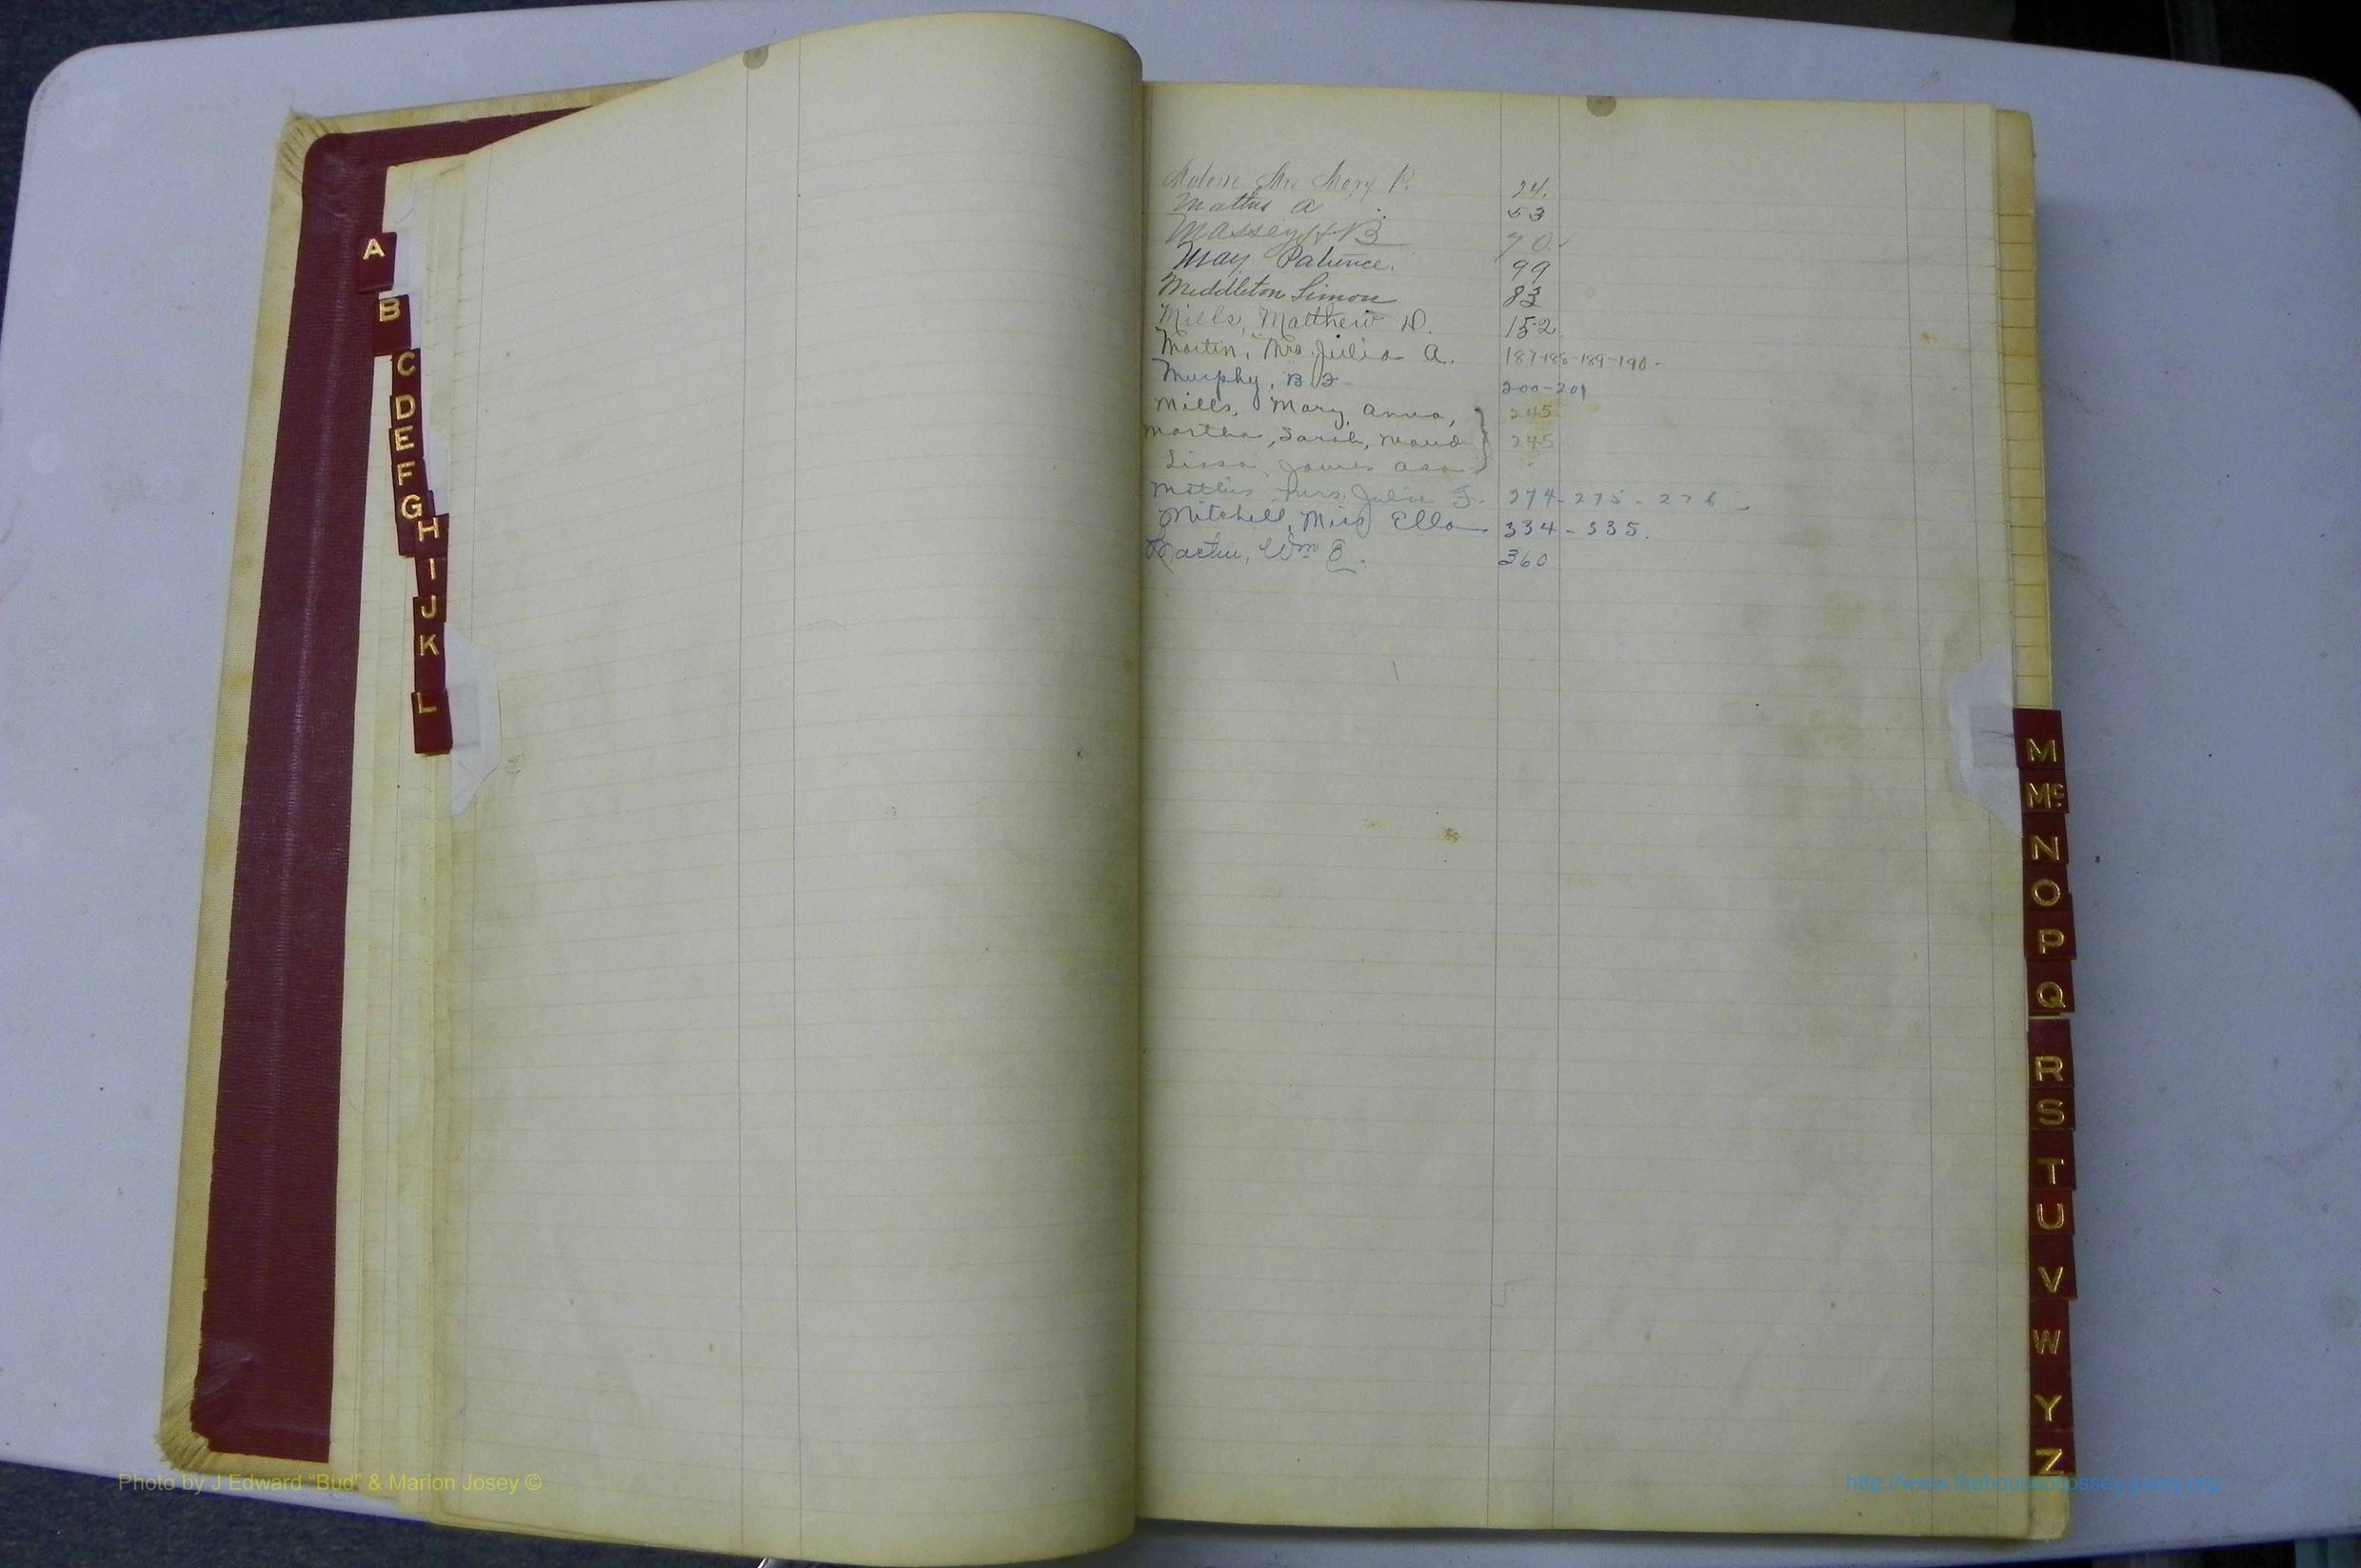 A
B
C
D
E
F
G
H
I
J
K
L
Mrs Mary P. 24.
Mathis A 53
Massey H. B 70.
May Patience. 99
Middleton Simon 83
Mills, Matthew D. 152
Martin, Mrs. Julia A. 187-188-189-190-
Murphy, B. F. 200-201
Mills, Mary, Anna, 245
Martha, Sarah, Maud 245
James Asa
Mathis, Mrs. Julia F. 274-275-276-
Mitchell, Miss Ella 334-335.
Martin, Wm E. 360
M
Mc
N
O
P
Q
R
S
T
U
V
W
Y
Z
Photo by J Edward “Bud” & Marion Josey ©